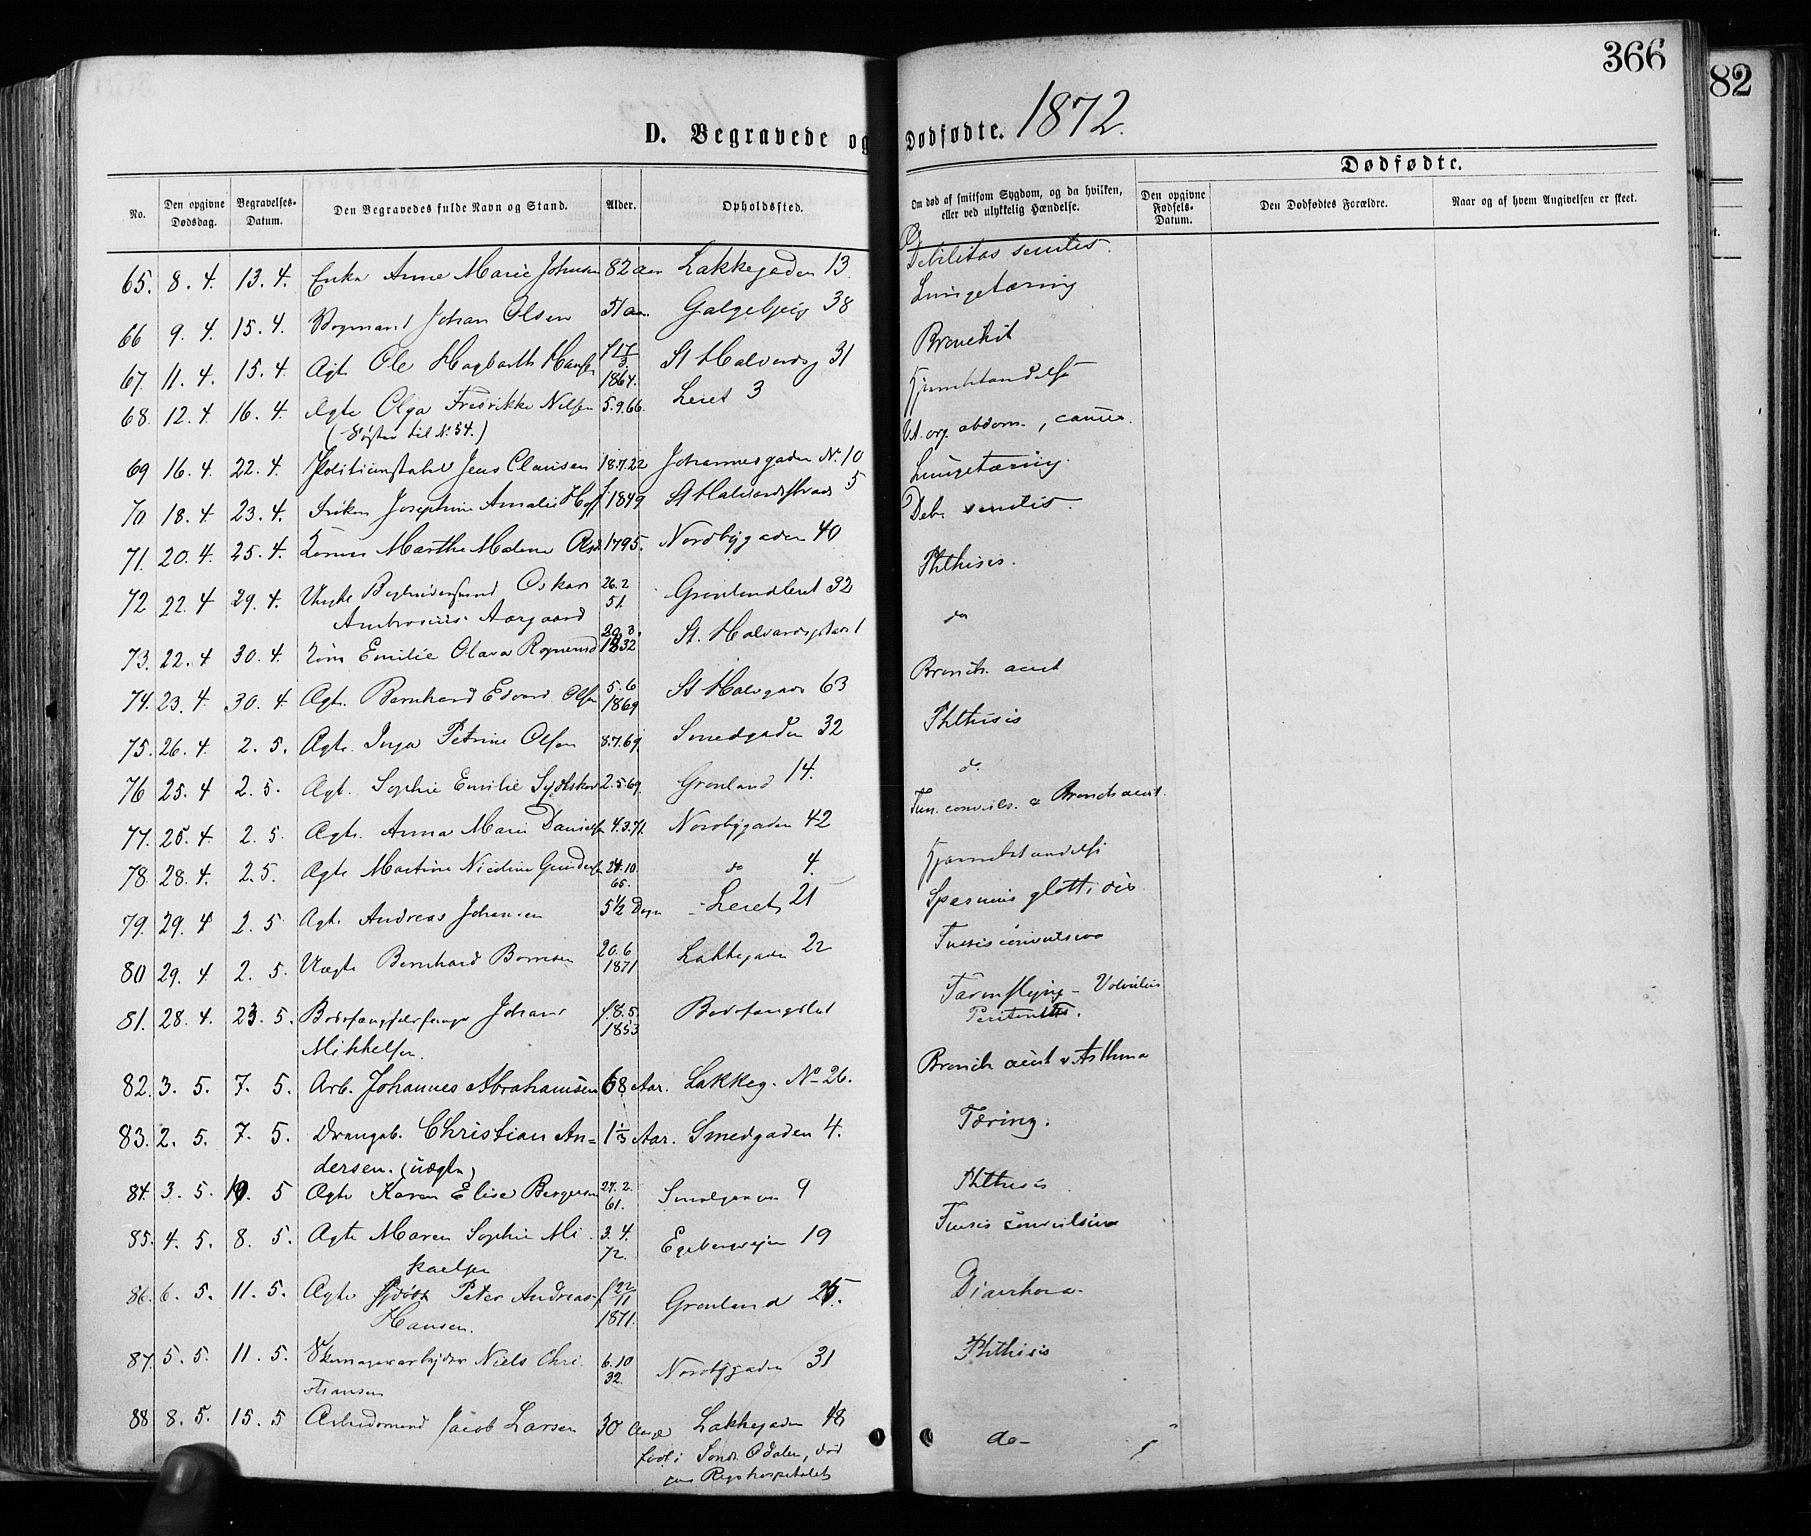 366
82
D. Begravede og Dødfødte. 1872.
Dødfødte.
No. | Den opgivne Dødsdag. | Begravelses-Datum. | Den Begravedes fulde Navn og Stand. | Alder. | Opholdssted. | Om død af smitsom Sygdom, og da hvilken, eller ved ulykkelig Hændelse. | Den opgivne Fødsels-Datum. | Den Dødfødtes Forældre. | Naar og af hvem Angivelsen er skeet.
65. 8. 4. 13. 4. Enke Anne Marie Johnsen 82 aar Lakkegaden 13 Debilitas senilis.
66 9. 4. 15. 4. Vognmand Johan Olsen 51 aar. Galgebjerg 38 Lungetæring
67. 11. 4. 15. 4. Ægte Ole Hagbarth Hansen f 17/3 1864. St Halvardsg 31 Bronchit
68. 12. 4. 16. 4. Ægte Olga Fredrikke Nilsen 5.9.66. Leret 3
(Søster til No 54.)
69 16. 4. 22. 4. Politikonstabel Jens Clausen 18.7.22 Johannesgaden No. 10 abdom.
70 18. 4. 23. 4. Frøken Josephine Amalie Hoff f 1849 St Halvardsgade 5 Lungetæring.
71. 20. 4. 25. 4. Marthe Malene 1795. Nordbygaden 40 Deb. senilis.
72 22. 4 29. 4. Oskar 26.2 51 Grønlandsleret 32 Phthisis.
Ambrosius Aargaard
73. 22. 4 30. 4. Emilie Olava 20.3. 1832 St. Halvards 1 do
74. 23. 4. 30. 4. Ægte Bernhard Edvard Olsen 5.6 1869 St Halvgade 63 Bronch. acut
75. 26. 4. 2. 5. Ægte Inga Petrine Olsen 8.7.69. Smedgaden 32 Phthisis
76 25. 4 2. 5. Ægt. Sophie Emilie 2.5.69. Grønland 14. do.
77. 25. 4. 2. 5. Ægte. Anna Marie Danielsen 4.3.71. Nordbygaden 42 Tus. convuls. & Bronch acut.
78. 28. 4. 2. 5. Ægte Martine Nicoline Gundersen 24.10. 65. do 4.
79. 29. 4 2. 5 Ægt. Andreas Johansen 5 1/2 Døgn Leret 21 Spasmus glottidis
80 29. 4 2. 5. Uægte Bernhard 20.6 1871 Lakkegaden 22 Tussis convulsiva
81. 28. 4. 23. 5. Bodsfængselsfange Johan f. 8.5. 1853 Bodsfængslet Tarmslyng – Volvulus
Mikkelsen.
82. 3. 5. 7. 5. Arb. Johannes Abrahamsen 68 Aar. Lakkeg. No 26. Bronch. acut & Asthma
83. 2. 5. 7. 5. Drengeb. Christian An= 1 1/3 Aar. Smedgaden 4. Tæring.
dersen. (uægte)
84. 3. 5. 10. 5 Ægte Karen Elise Bergersen 27.2. 61. Smedgaden 9 Phthisis
85. 4. 5. 8. 5. Ægte Maren Sophie Mi- 3.4. 72. Egebergveien 19 Tussis convulsiva
kaelsen
86. 6. 5. 11. 5. Ægte Peter Andreas f 22/11 1871. Grønland 25. Diarrhoea.
Hansen.
87. 5. 5. 11. 5. Skomagerarbejder Niels Chri 6.10 32. Nordbygaden 31 Phthisis
stiansen
88 8. 5. 15. 5 Arbeidsmand Jacob Larsen 30 Aar Lakkegaden 48 do–
født i Søndr Odalen, død
paa Rigshospitalet